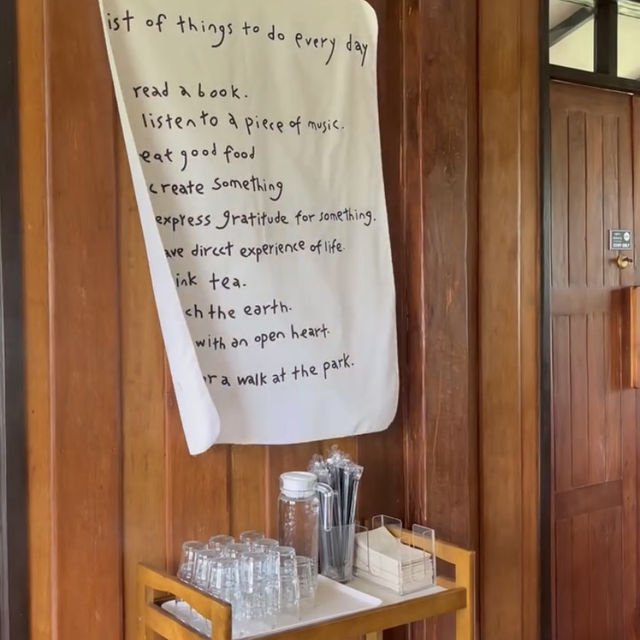 ist of things to do every day
read a book.
listen to a piece of music.
eat good food
create something
express gratitude for something.
ave direct experience of life.
ink tea.
ch the earth.
with an open heart.
or a walk at the park.